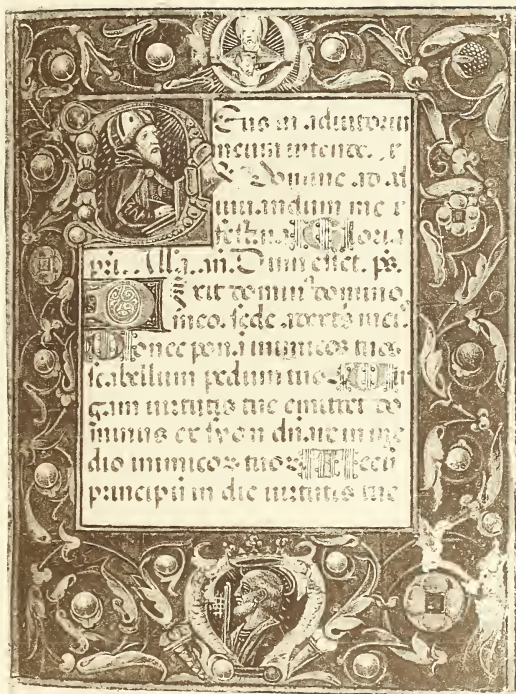 Eus in adiutoriu
meum intende. R
Domine ad ad
iuuandum me f
festina Gloria
pri. Alla. an. Dum esset. ps.
Dixit domin' domino
meo. sede a dextris meis
Donec ponam inimicos tuos
scabellum pedum tuo Uir
gam uirtutis tue emittet do
minus ex syon dnare in me
dio inimicoꝝ tuoꝝ Tecu
principiu in die uirtutis tue